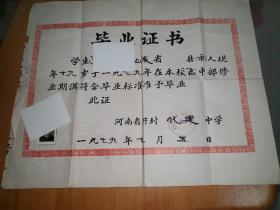 毕业证书
学生 省 县市人现
年十九岁于一九七九年在本校高中部修
业期满符合毕业标准准予毕业
此证
河南省开封 中学
一九七九年七月 五日